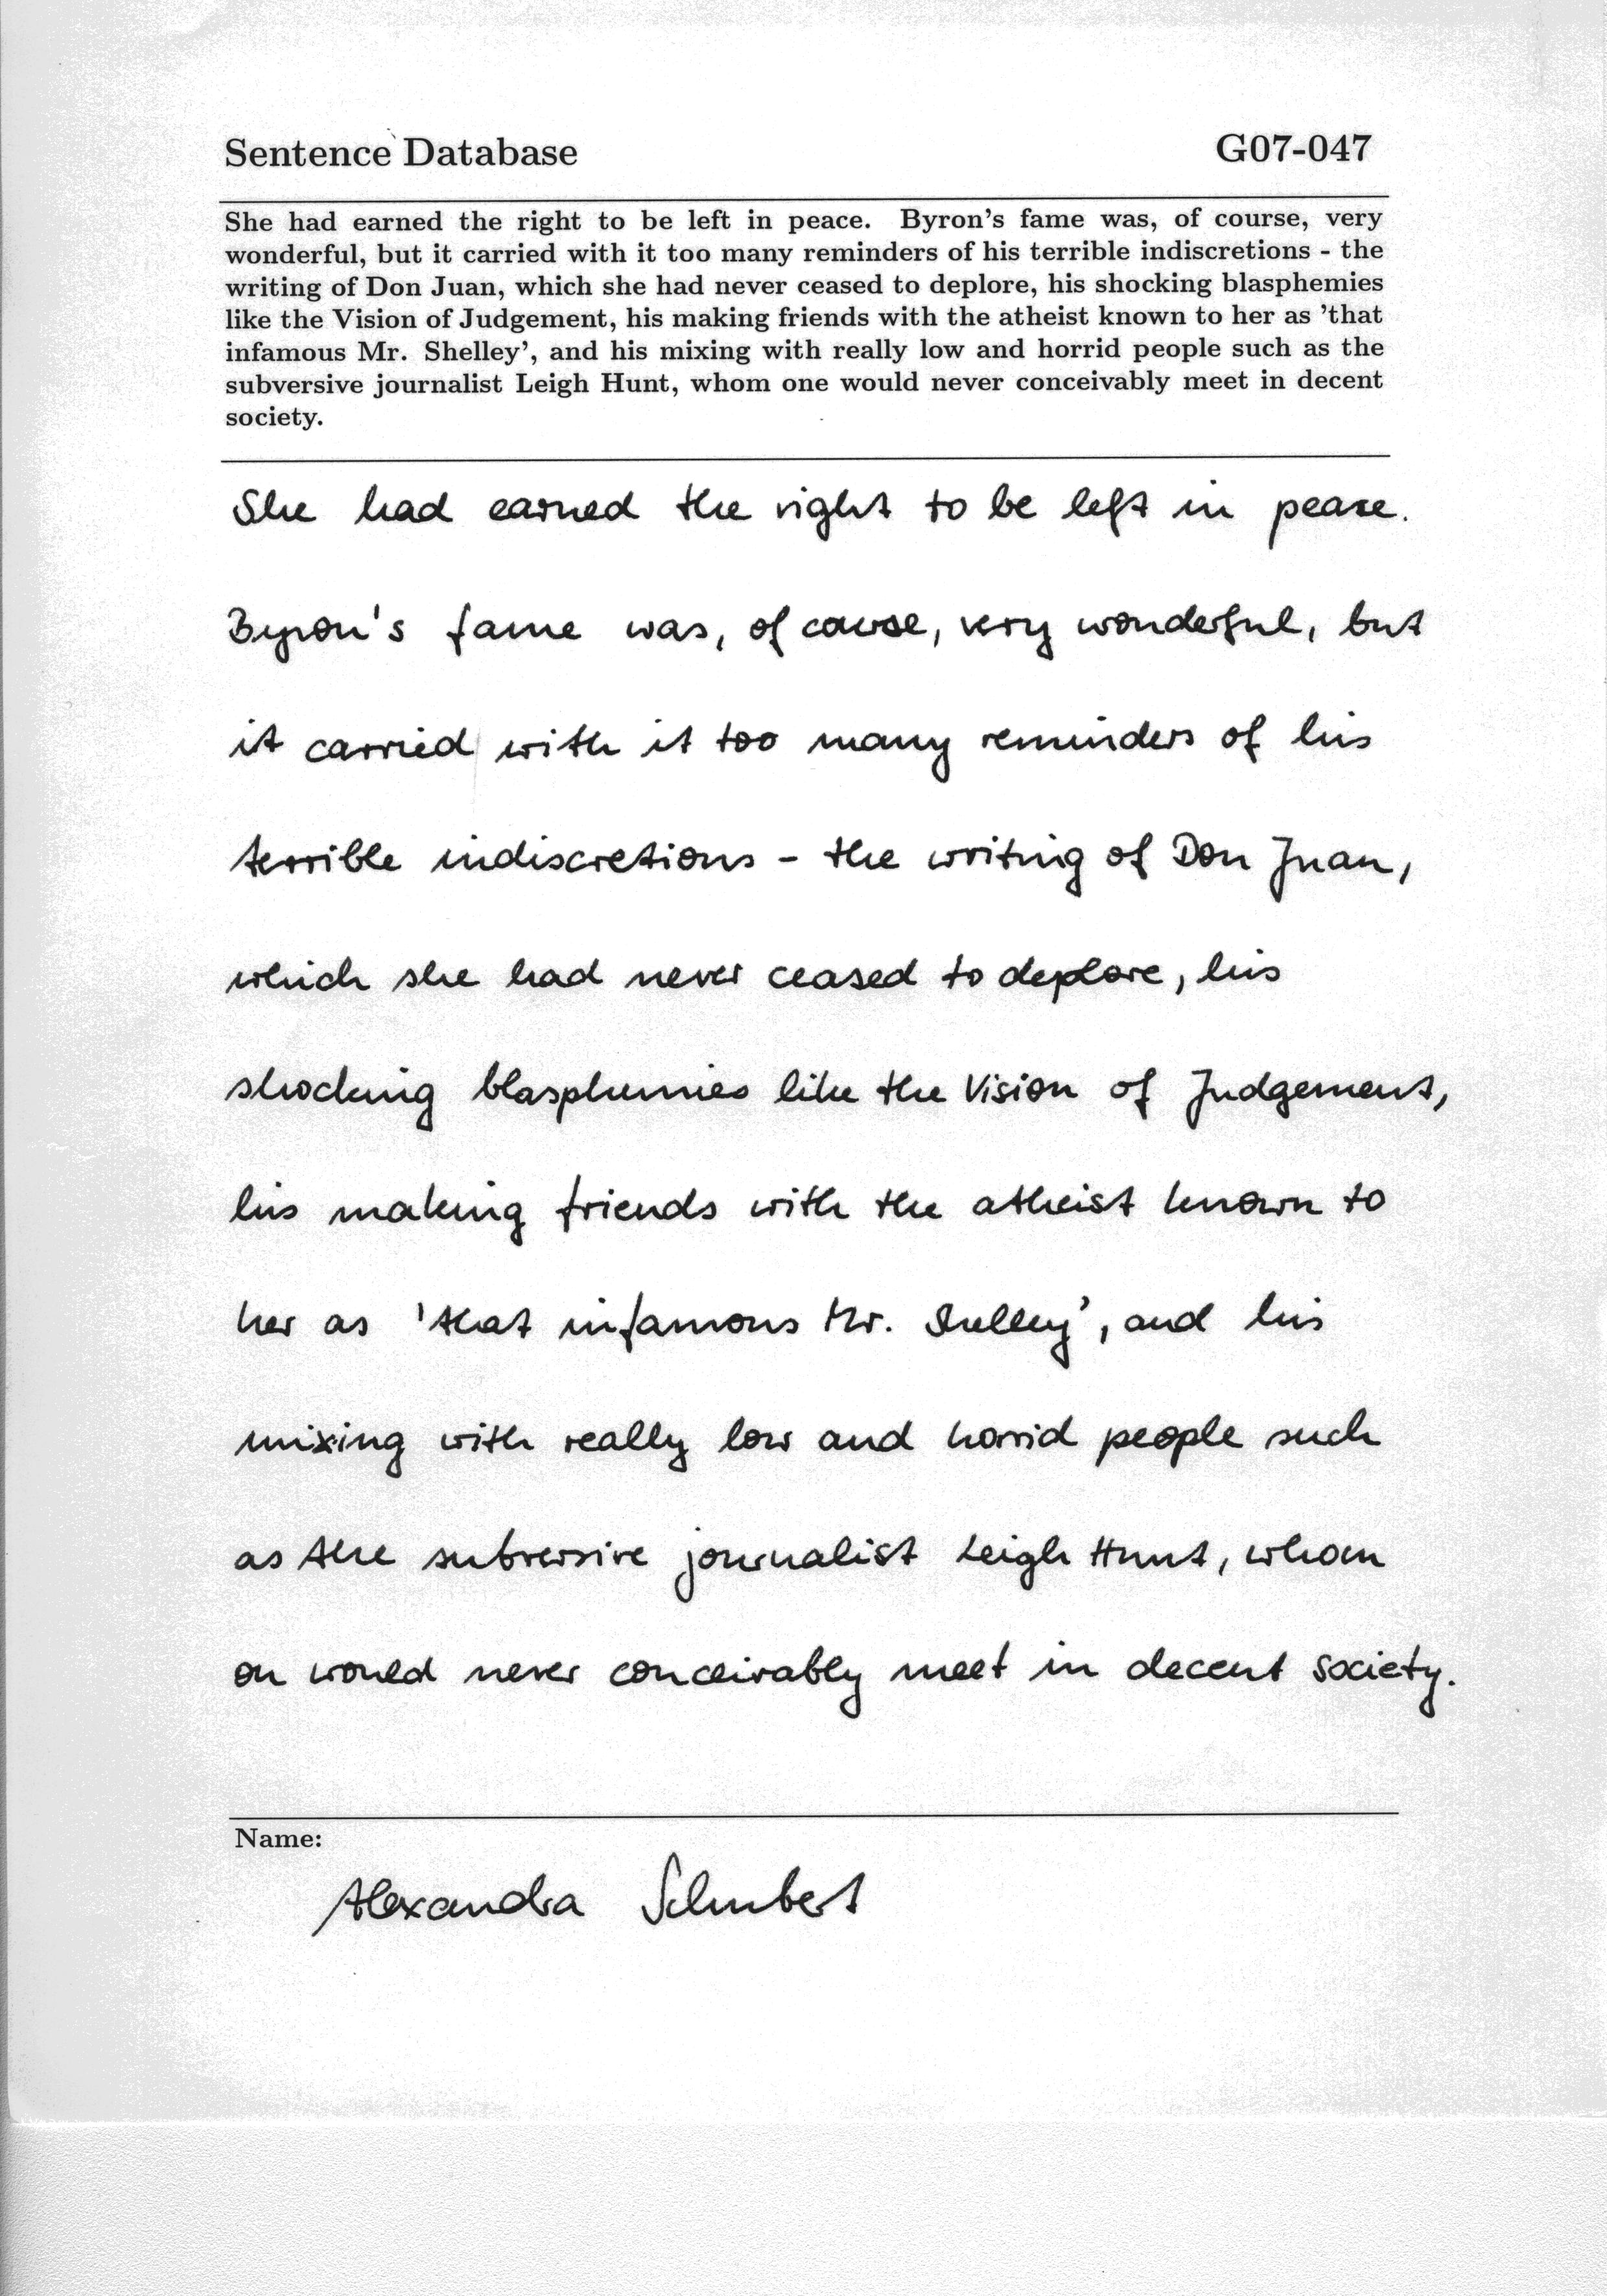 Sentence Database G07-047
She had earned the right to be left in peace. Byron's fame was, of course, very
wonderful, but it carried with it too many reminders of his terrible indiscretions - the
writing of Don Juan, which she had never ceased to deplore, his shocking blasphemies
like the Vision of Judgement, his making friends with the atheist known to her as 'that
infamous Mr. Shelley', and his mixing with really low and horrid people such as the
subversive journalist Leigh Hunt, whom one would never conceivably meet in decent
society.
She had earned the right to be left in peace.
Byron's fame was, of cause, very wonderful, but
it carried with it too many reminders of his
terrible indiscretions - the writing of Don Juan,
which she had never ceased to deplore, his
shocking blasphemies like the Vision of Judgement,
his making friends with the atheist known to
her as 'that infamous Mr. Shelley', and his
mixing with really low and horrid people such
as the subversive journalist Leigh Hunt, whom
on would never conceivably meet in decent society.
Name:
Alexandra Schubert